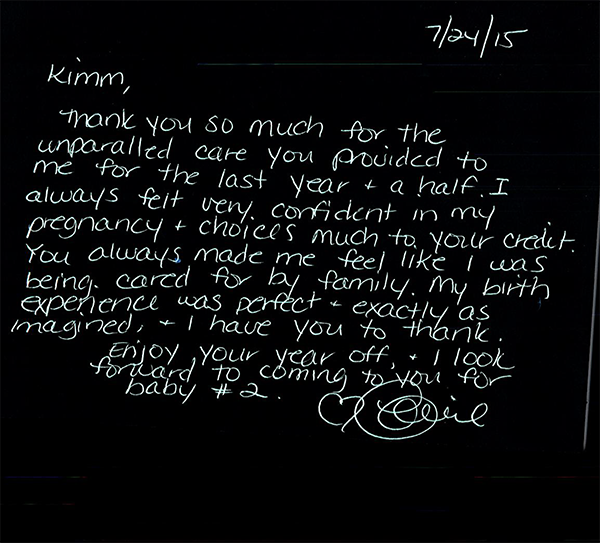 7/24/15
Kimm,
Thank you so much for the
unparalled care you provided to
me for the last year + a half. I
always felt very confident in my
pregnancy + choices much to your credit.
You always made me feel like I was
being cared for by family. My birth
experience was perfect + exactly as
imagined, + I have you to thank.
Enjoy your year off, + I look
forward to coming to you for
baby #2.